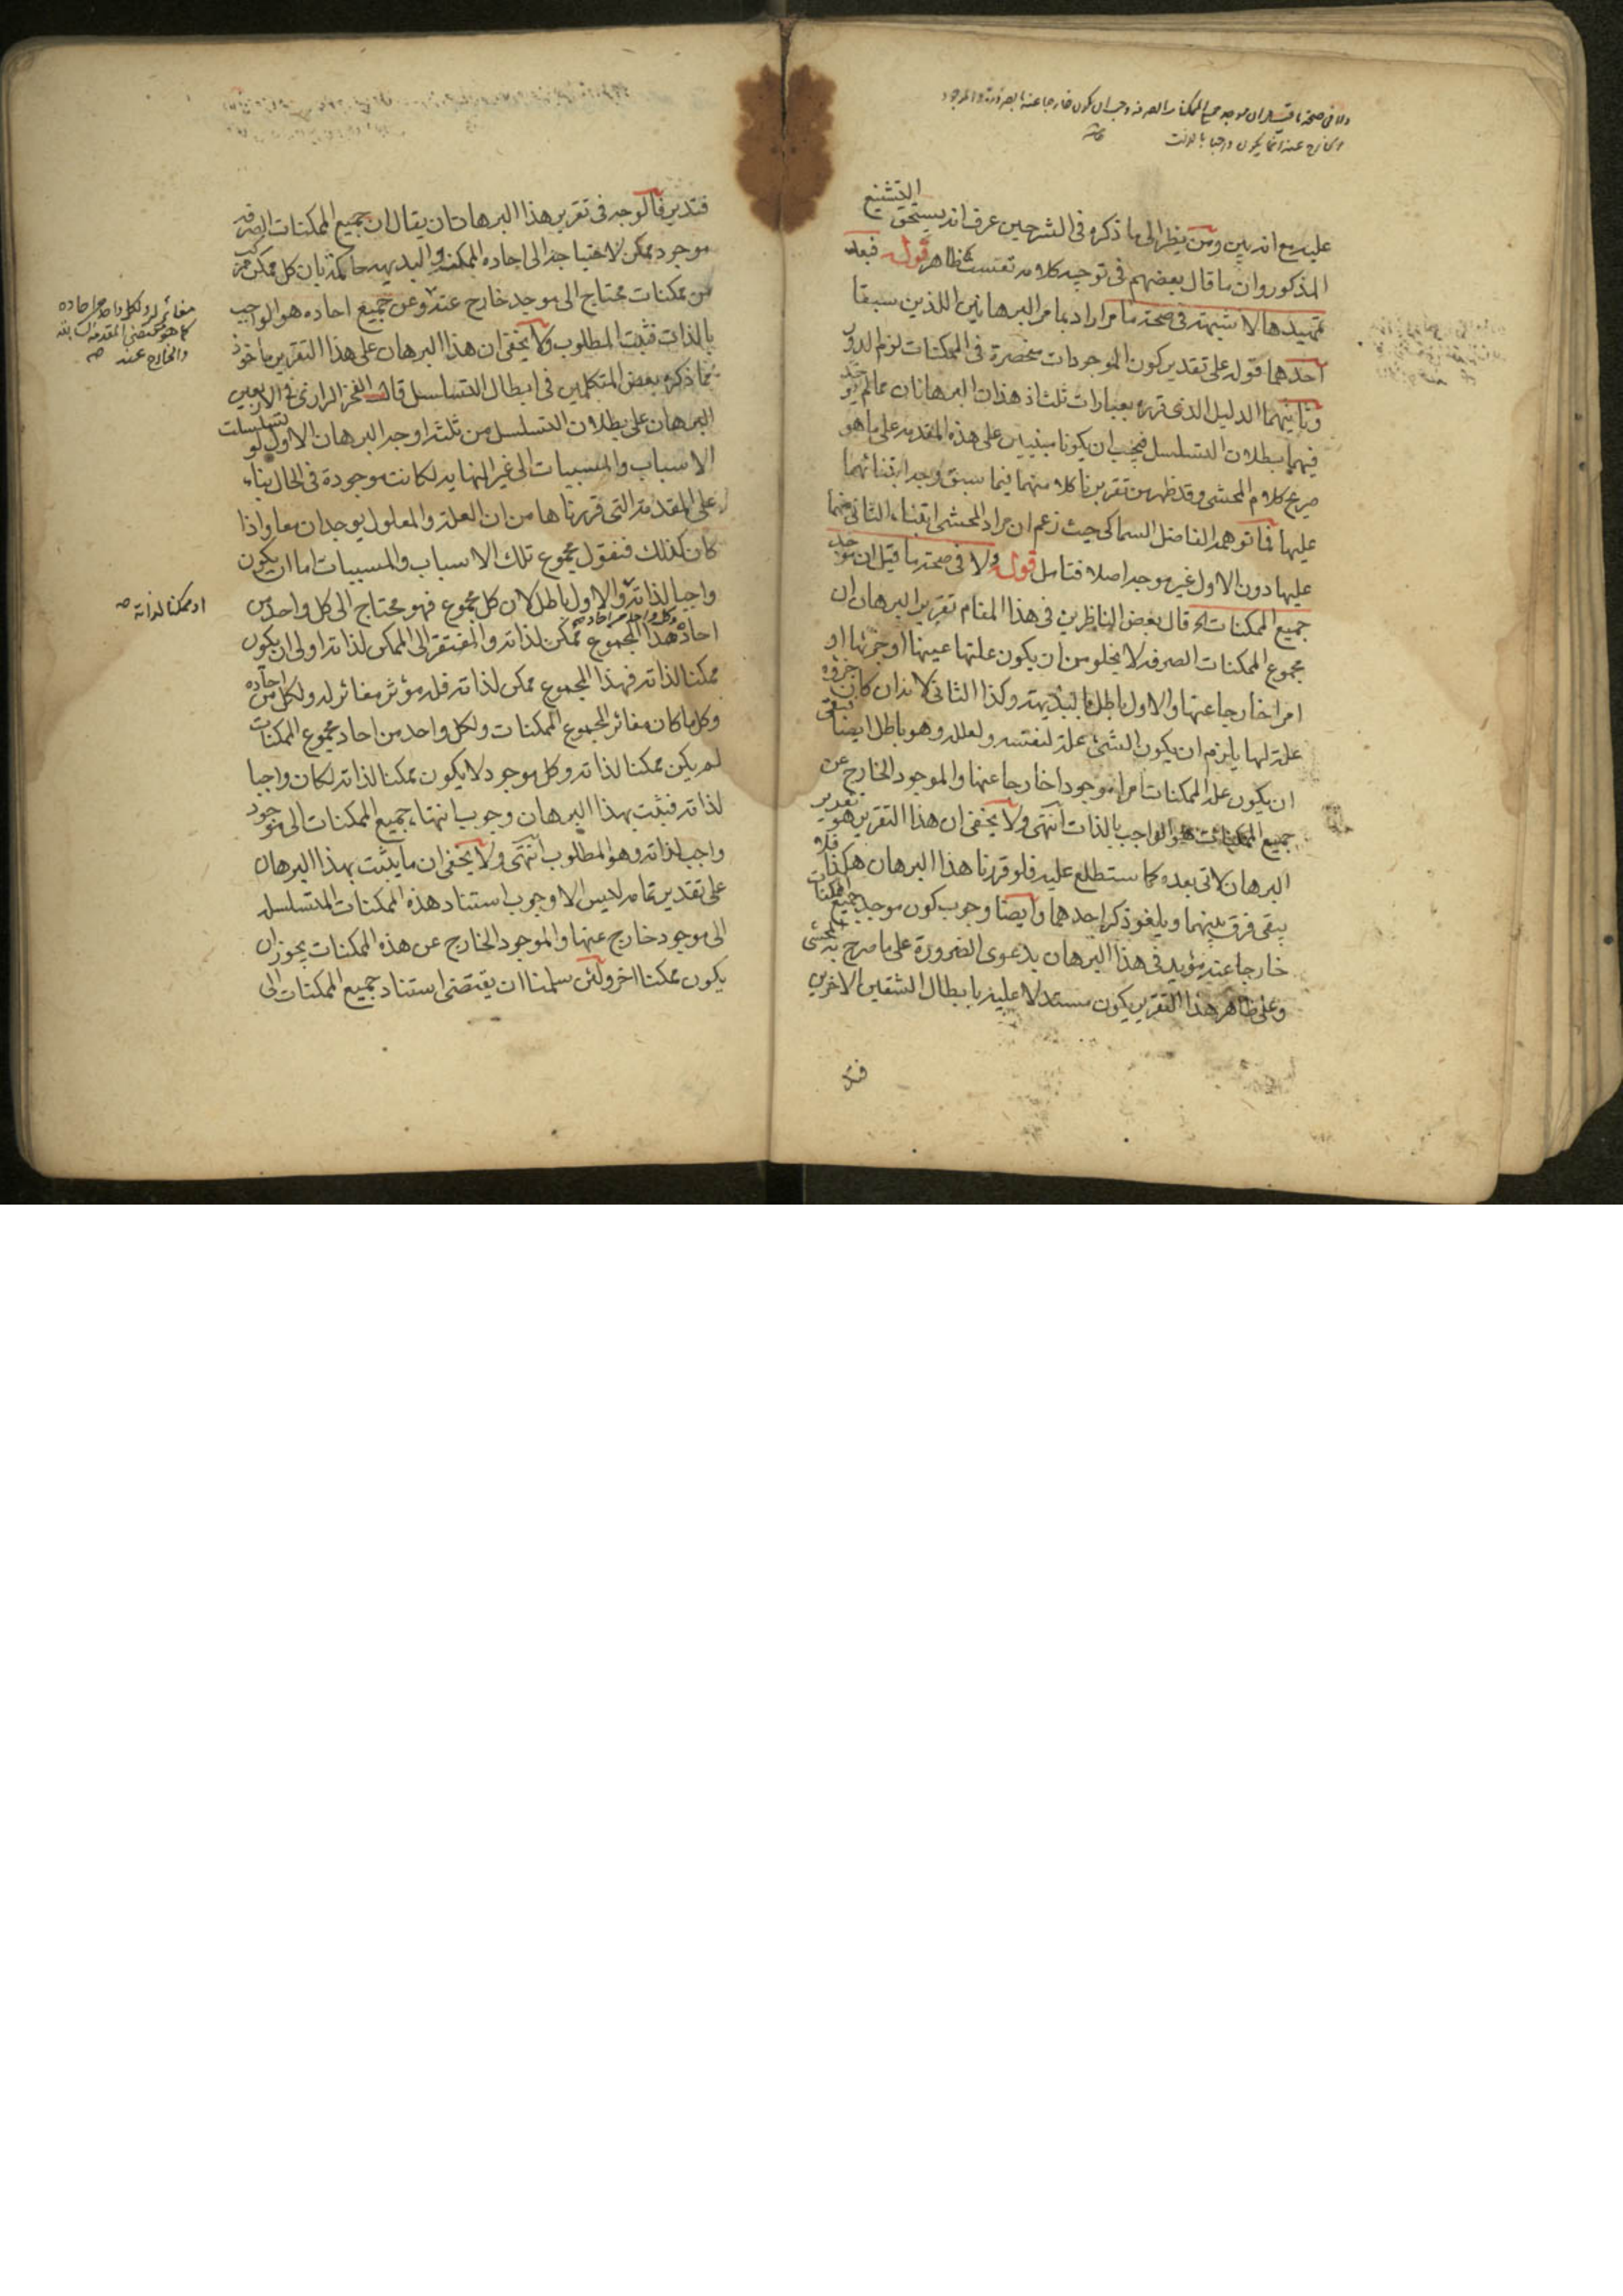 ولا في صحة ما قيل ان موجد جميع الممكنات الصرفة وجب ان يكون خارجا عنها بالضرورة والموجود
الخارج عنه انما يكون واجبا بالذات
عليه مع انه بين ومن ينظر الى ما ذكره في الشرحين عرف انه يستحق التشنيع
المذكور وان ما قال بعضهم في توجيه كلامه تعسف ظاهر قوله فبعد
تمهيدها لا شبهة في صحة ما مر اراد بما مر البرهانين اللذين سبقا
احدهما قوله على تقدير كون الموجودات منحصرة في الممكنات لزم الدور
وثانيهما الدليل الذي قرره بعبارات ثلث اذ هذان البرهانان مما لم يؤخذ
فيهما بطلان التسلسل فيجب ان يكونا مبنيين على هذه المقدمة على ما هو
صريح كلام المحشي وقد ظهر من تقريرنا كلامنهما فيما سبق وجه ابتنائهما
عليها فما توهمه الفاضل السماكي حيث زعم ان مراد المحشي ابتناء الثاني منهما
عليها دون الاول غير موجه اصلا فتامل قوله ولا في صحة ما قيل ان موجد
جميع الممكنات الخ قال بعض الناظرين في هذا المقام تقرير البرهان ان
مجموع الممكنات الصرفة لا يخلو من ان يكون علتها عينها او جزئها او
امرا خارجا عنها والاول باطل بالبديهة وكذا الثاني لانه ان كان جزؤه
علة لها يلزم ان يكون الشئ علة لنفسه ولعلله وهو باطل ايضا فبقي
ان يكون علة الممكنات امرا موجودا خارجا عنها والموجود الخارج عن
جميع الممكنات هو الواجب بالذات انتهى ولا يخفى ان هذا التقرير هو تقرير
البرهان الاتي بعده كما ستطلع عليه فلو قررنا هذا البرهان هكذا فلا
يبقى فرق بينهما ويلغو ذكر احدهما وايضا وجوب كون موجد جميع الممكنات
خارجا عنه مؤيد في هذا البرهان بدعوى الضرورة على ما صرح به المحشي
وعلى ظاهر هذا التقرير يكون مستدلا عليه بابطال الشقين الاخرين
فتد
فتدبر فالوجه في تقرير هذا البرهان ان يقال ان جميع الممكنات الصرفة
موجود ممكن لاحتياجه الى احاده الممكنة والبديهة حاكمة بان كل ممكن مركب
من ممكنات محتاج الى موجد خارج عنه وعن جميع احاده هو الواجب
بالذات فثبت المطلوب ولا يخفى ان هذا البرهان على هذا التقرير ماخوذ
مما ذكره بعض المتكلمين في ابطال التسلسل قال الفخر الرازي في الاربعين
البرهان على بطلان التسلسل من ثلثة اوجه البرهان الاول لو تسلسلت
الاسباب والمسببات الى غير النهاية لكانت موجودة في الحال بناء
على المقدمة التي قررناها من ان العلة والمعلول يوجدان معا واذا
كان كذلك فنقول مجموع تلك الاسباب والمسببات اما ان يكون
واجبا لذاته والاول باطل لان كل مجموع فهو محتاج الى كل واحد من
احاده وكل واحد من احاد هذا المجموع ممكن لذاته والمفتقر الى الممكن لذاته اولى ان يكون
ممكنا لذاته فهذا المجموع ممكن لذاته فله مؤثر مغائر له ولكل من احاده
وكل ما كان مغائر المجموع الممكنات ولكل واحد من احاد مجموع الممكنات
لم يكن ممكنا لذاته وكل موجود لا يكون ممكنا لذاته لكان واجبا
لذاته فثبت بهذا البرهان وجوب انتهاء جميع الممكنات الى موجود
واجب لذاته وهو المطلوب انتهى ولا يخفى ان ما يثبت بهذا البرهان
على تقدير تمامه ليس الا وجوب استناد هذه الممكنات المتسلسلة
الى موجود خارج عنها والموجود الخارج عن هذه الممكنات يجوز ان
يكون ممكنا اخر ولئن سلمنا ان يقتضي استناد جميع الممكنات الى
مغائر له ولكل واحد من احاده
كما هو مقتضى المقدمة
والخارج عنه صح
او ممكنا لذاته صح